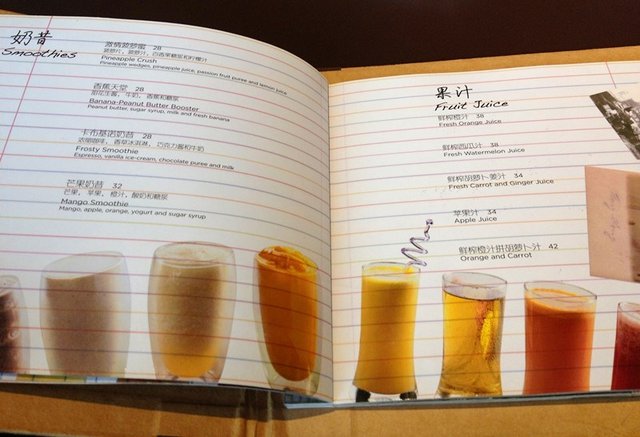 奶昔
Smoothies
激情菠萝蜜 28
菠萝片，菠萝汁，百香果糖浆和柠檬汁
Pineapple Crush
Pineapple wedges, pineapple juice, passion fruit puree and lemon juice
香蕉天堂 28
牛奶，香蕉和糖浆
Banana-Peanut Butter Booster
Peanut butter, sugar syrup, milk and fresh banana
卡布基诺奶昔 28
浓缩咖啡，香草冰淇淋，巧克力酱和牛奶
Frosty Smoothie
Espresso, vanilla ice-cream, chocolate puree and milk
芒果奶昔 32
芒果，苹果，橙汁，酸奶和糖浆
Mango Smoothie
Mango, apple, orange, yogurt and sugar syrup
果汁
Fruit Juice
鲜榨橙汁 38
Fresh Orange Juice
鲜榨西瓜汁 38
Fresh Watermelon Juice
鲜榨胡萝卜姜汁 34
Fresh Carrot and Ginger Juice
苹果汁 34
Apple Juice
鲜榨橙汁拼胡萝卜汁 42
Orange and Carrot